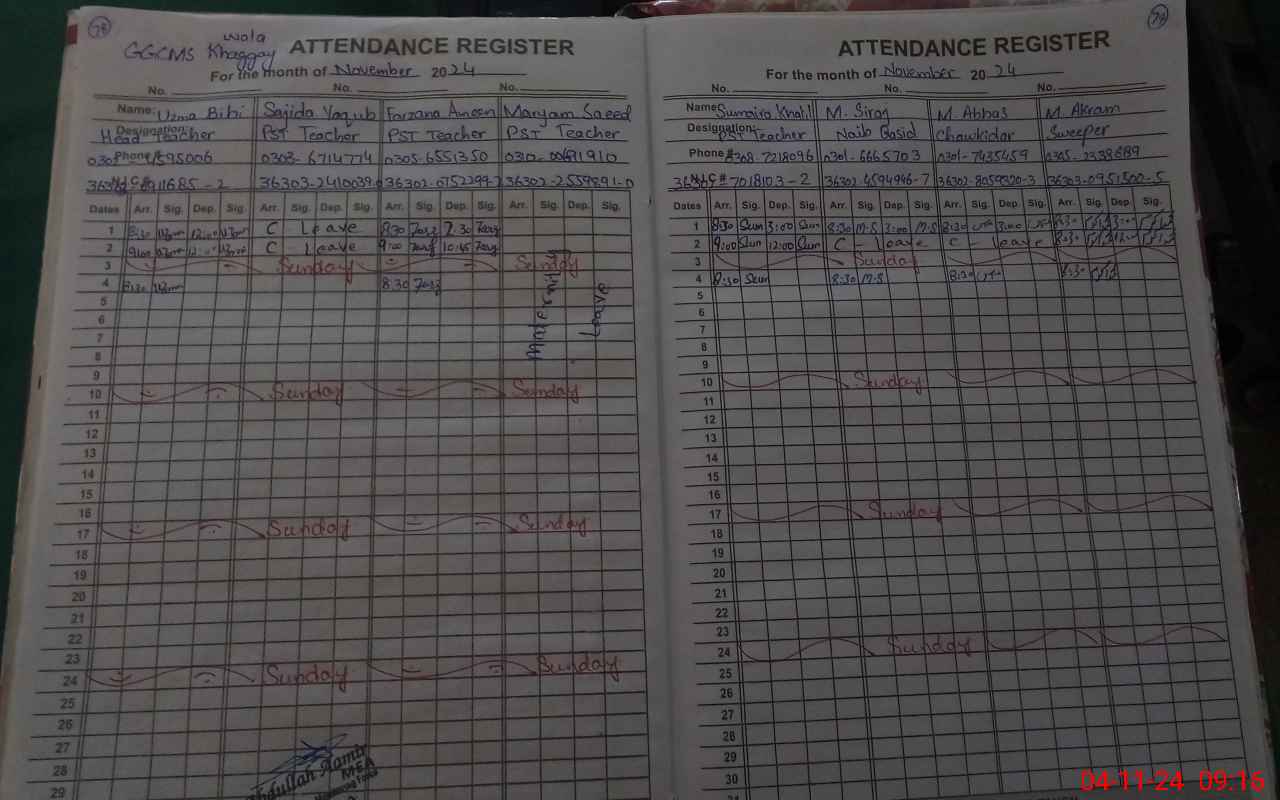 78
GGCMS Khaggay wala
ATTENDANCE REGISTER
For the month of November 2024
No. No. No.
Name: Uzma Bibi Sajida Yaqub Farzana Ameen Maryam Saeed
Designation: Head Teacher PST Teacher PST Teacher PST Teacher
Phone # 0303-6714774 0305-6551350
N.I.C #
Dates Arr. Sig. Dep. Sig. Arr. Sig. Dep. Sig. Arr. Sig. Dep. Sig. Arr. Sig. Dep. Sig.
1 8:30 12:00 C - Leave 8:30 Farz 2:30 Farz
2 9:00 12:00 C - Leave 9:00 Farz 10:45 Farz
3 Sunday Sunday
4 8:30 8:30 Farz
Maternity Leave
5
6
7
8
9
10 Sunday Sunday
11
12
13
14
15
16
17 Sunday Sunday
18
19
20
21
22
23
24 Sunday Sunday
25
26
27
28
29
Abdullah Aamir
MEA
ATTENDANCE REGISTER
For the month of November 2024
No. No. No.
Name: Sumaira Khalil M. Siraj M. Abbas M. Akram
Designation: PST Teacher Naib Qasid Chawkidar Sweeper
Phone # 0308-7218096 0301-6665703 0301-7435459 0305-2338689
N.I.C # 36302-4594946-7 36302-8059320-3 36303-0951500-5
Dates Arr. Sig. Dep. Sig. Arr. Sig. Dep. Sig. Arr. Sig. Dep. Sig. Arr. Sig. Dep. Sig.
1 8:30 Sum 3:00 Sum 8:30 M.S 3:00 M.S 8:30 3:00 8:30 3:00
2 9:00 Sum 12:00 Sum C - Leave C - Leave 8:30
3 Sunday
4 8:30 Sum 8:30 M.S 8:30 8:30
5
6
7
8
9
10 Sunday
11
12
13
14
15
16
17 Sunday
18
19
20
21
22
23
24 Sunday
25
26
27
28
29
30
04-11-24 09:16